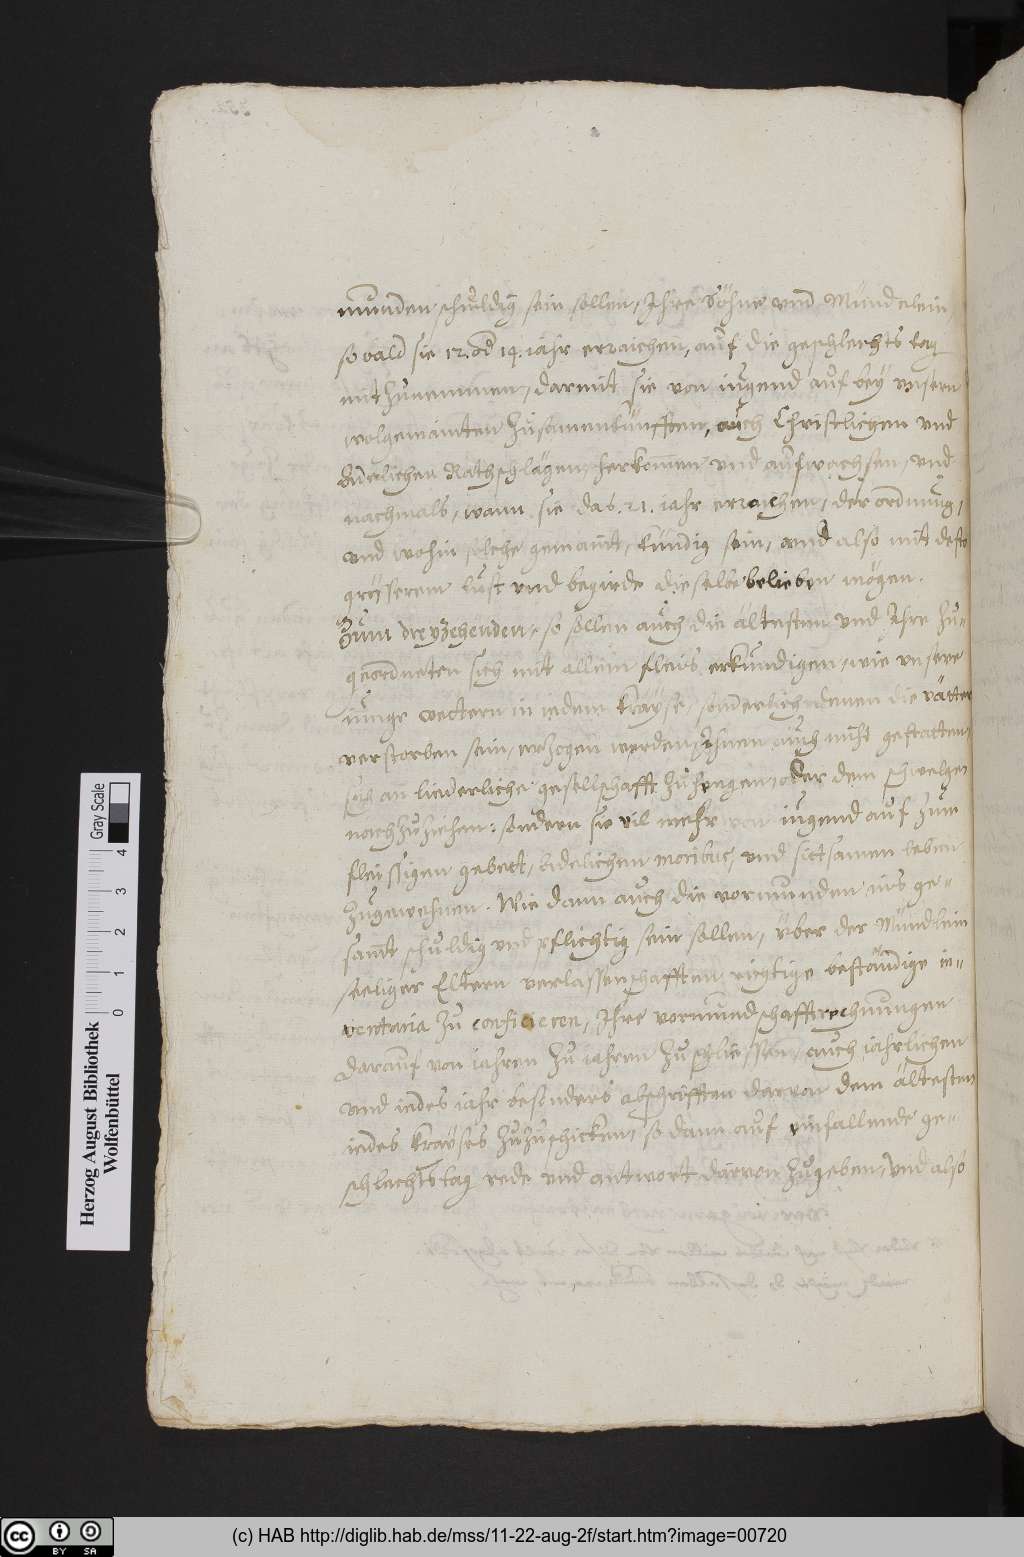 munden, schuldig sein sollen, Ihre Söhne und Mündelein,
so bald sie 12. od 14. iahr erraichen, auf die geschlechts tag
mitzunemmen, darmit sie von iugend auf bey unsern
wolgemainten Zusamenkunfften, auch Christlichen und
Aderlichen Rathschlägen, herkommen und aufwachsen, und
nachmals, wann sie das 21. iahr erraichen, der ordnung,
und wohin solche gemaint, kündig sein, und also mit desto
grösserem lust und begirde dieselbe belieben mögen.
Zum dreyzehenden, so sollen auch die ältesten und Ihre Zu-
geordneten sich mit allem fleis erkundigen, wie unsere
iunge vettern in iedem Krayse, sonderlich denen die vätter
verstorben sein, erzogen werden, Ihnen auch nicht gestatten,
sich an liederliche gesellschafft zuhengen, oder dem schwelgen
nachzuziehen: sondern sie vil mehr von iugend auf zum
fleissigen gebett, Adelichen moribus, und sittsamen leben
Zugewehnen. Wie dann auch die vormunden ins ge-
samt schuldig und pflichtig sein sollen, über der Mündlein
seeliger Eltern verlassenschafften richtige beständige in-
ventaria zu conficieren, Ihre vormundschafftrechnungen
darauf von iahren zu iahren zu schliessen, auch iährlichen
und iedes iahr besonders abschrifften darvon dem ältesten
iedes Krayses zuzuschicken, so dann auf einfallende ge-
schlechtstag rede und antwort darvon zugeben, und also
Herzog August Bibliothek
Wolfenbüttel
Gray Scale
0 1 2 3 4
cc BY SA
(c) HAB http://diglib.hab.de/mss/11-22-aug-2f/start.htm?image=00720